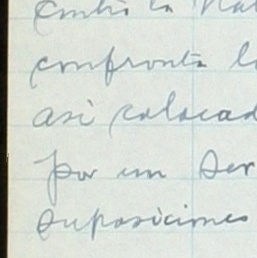 contra la
confronta l
asi colocad
por un ser
suposiciones